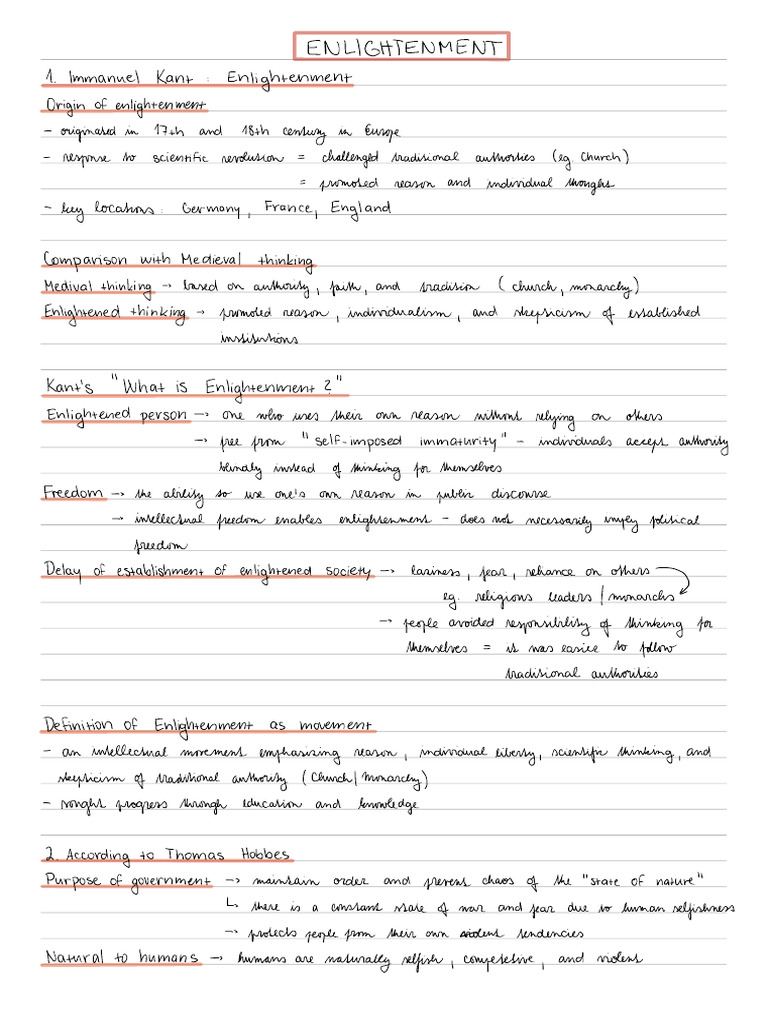 ENLIGHTENMENT
1. Immanuel Kant : Enlightenment
Origin of enlightenment
- originated in 17th and 18th century in Europe
- response to scientific revolution = challenged traditional authorities (eg. Church)
= promoted reason and individual thought
- key locations: Germany, France, England
Comparison with Medieval thinking
Medival thinking → based on authority, faith, and tradition (church, monarchy)
Enlightened thinking → promoted reason, individualism, and skepticism of established
institutions
Kant's "What is Enlightenment?"
Enlightened person → one who uses their own reason without relying on others
→ free from "self-imposed immaturity" - individuals accept authority
blindly instead of thinking for themselves
Freedom → the ability to use one's own reason in public discourse
→ intellectual freedom enables enlightenment - does not necessarily imply political
freedom
Delay of establishment of enlightened society → laziness, fear, reliance on others
eg. religious leaders / monarchs
→ people avoided responsibility of thinking for
themselves = it was easier to follow
traditional authorities
Definition of Enlightenment as movement
- an intellectual movement emphasizing reason, individual liberty, scientific thinking, and
skepticism of traditional authority (Church / Monarchy)
- sought progress through education and knowledge
2. According to Thomas Hobbes
Purpose of government → maintain order and prevent chaos of the "state of nature"
↳ there is a constant state of war and fear due to human selfishness
→ protects people from their own violent tendencies
Natural to humans → humans are naturally selfish, competetive, and violent